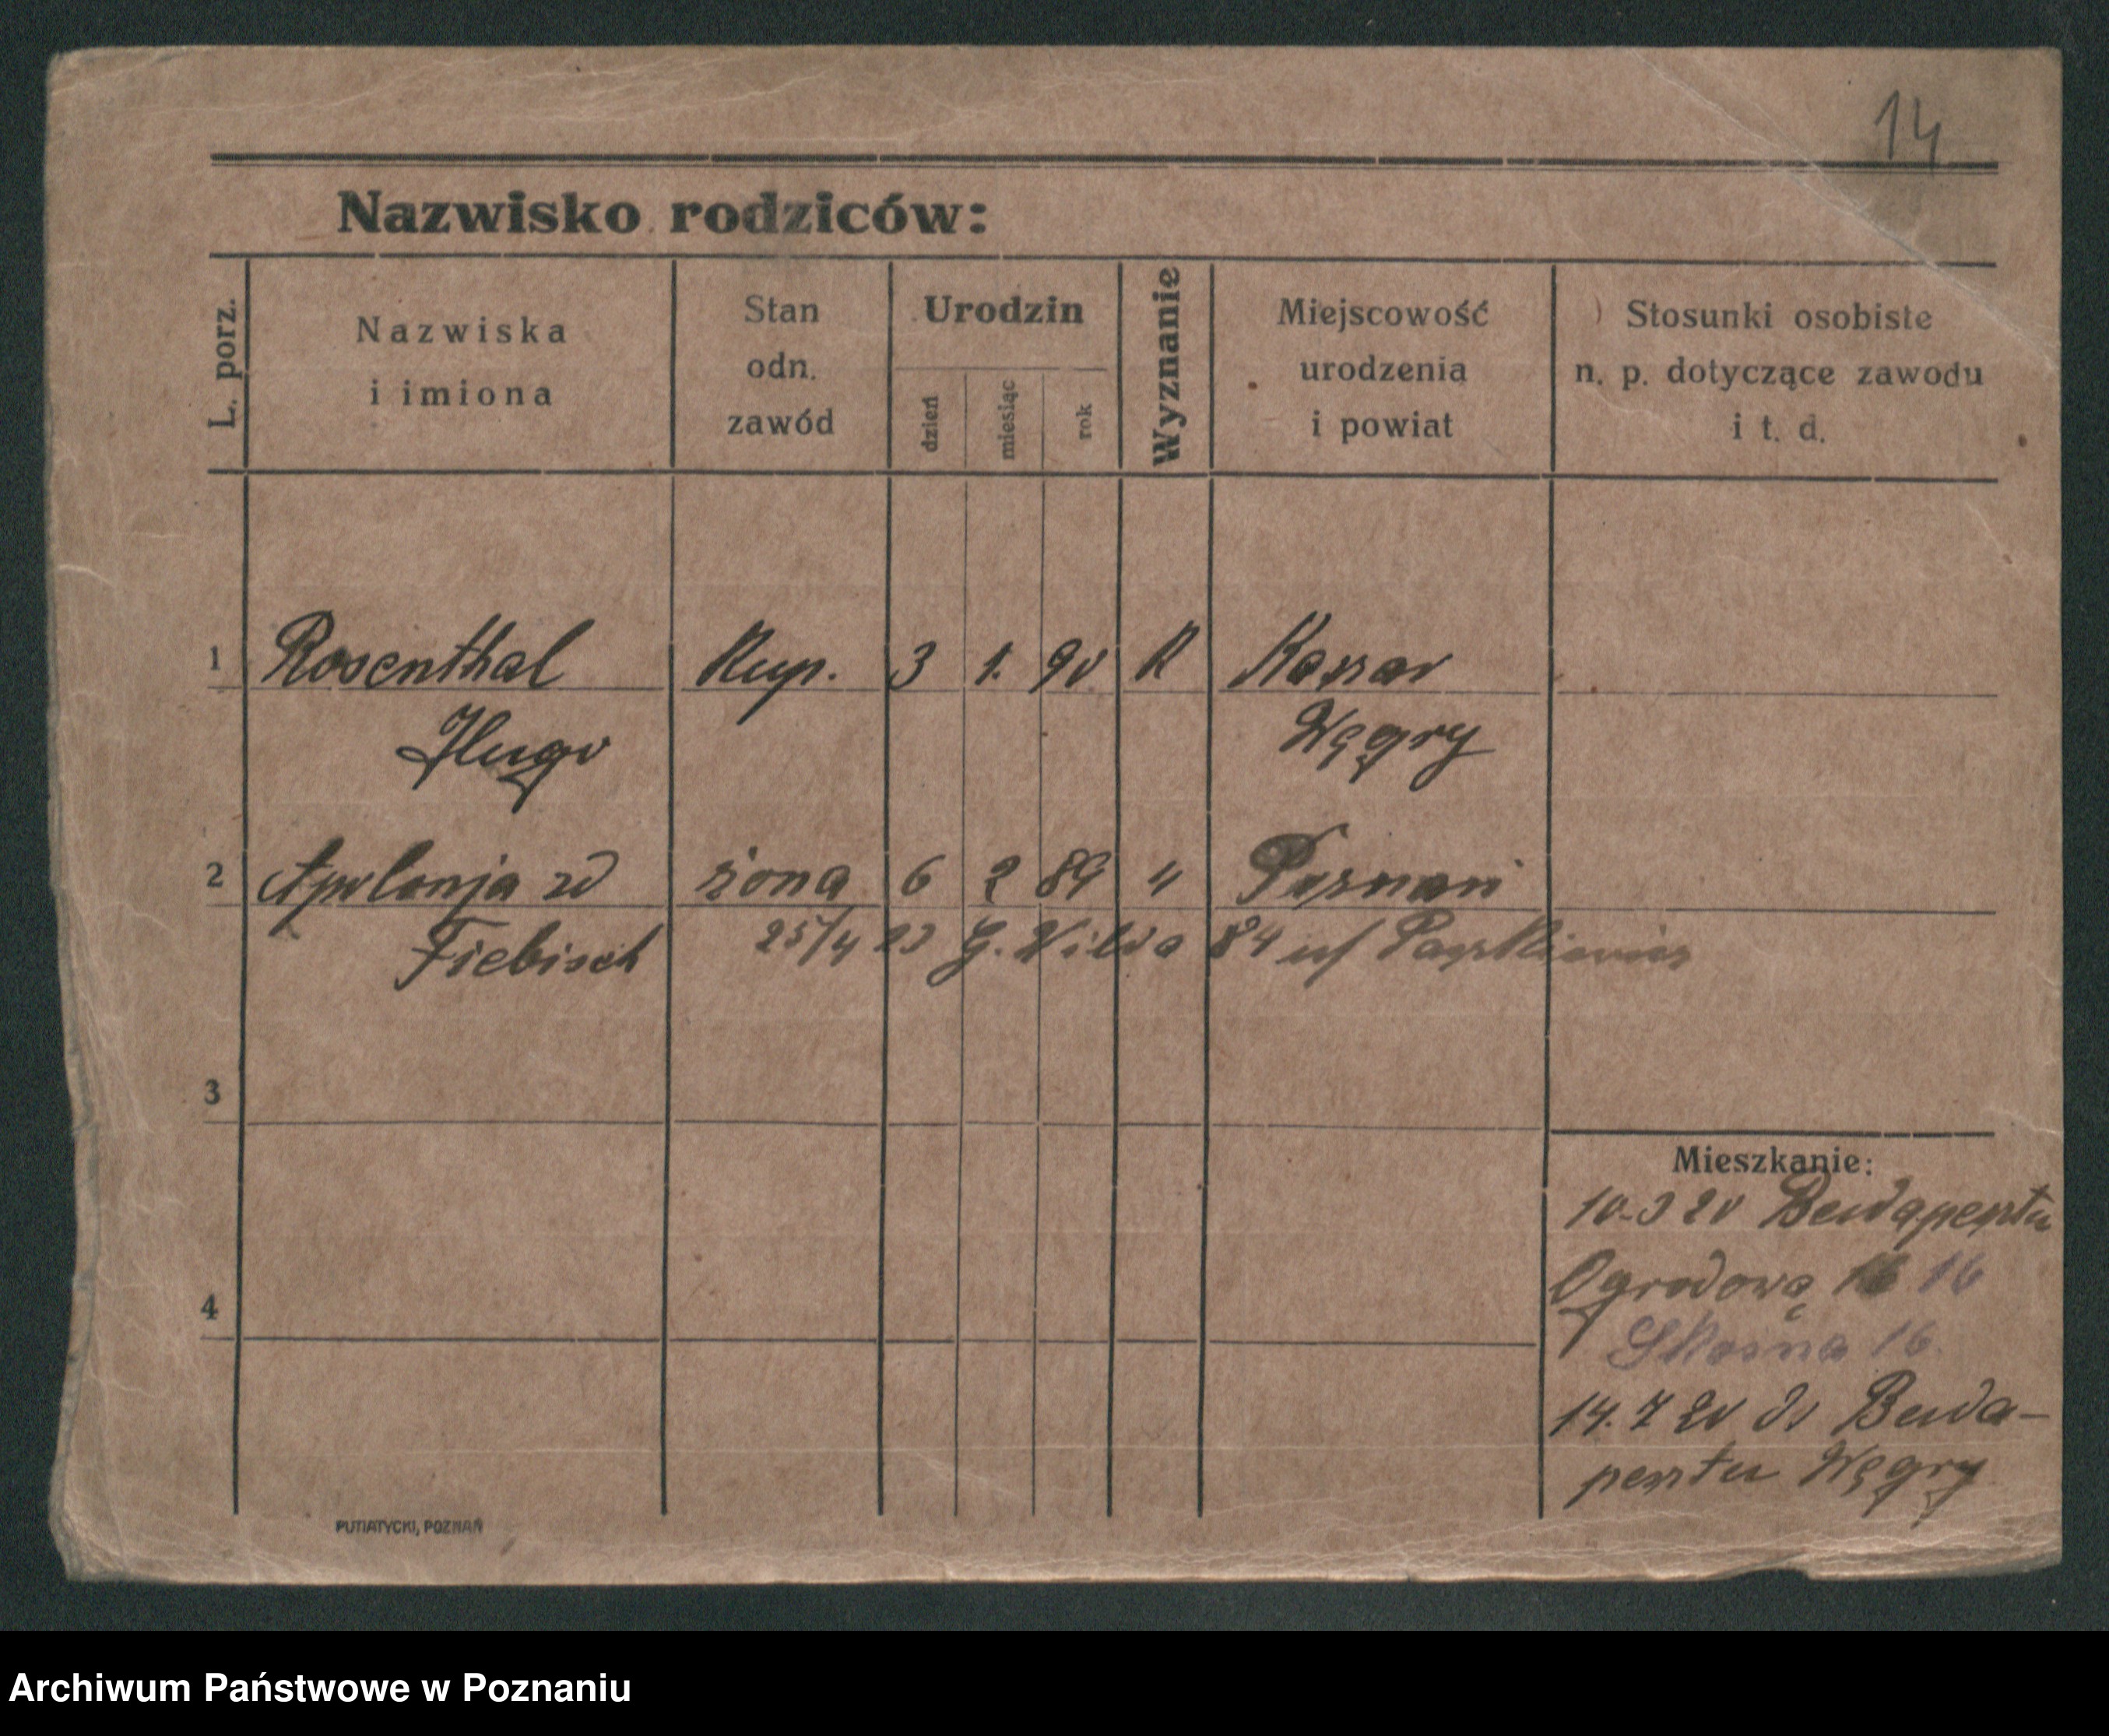 14
Nazwisko rodziców:
L. porz.
Nazwiska
i imiona
Stan
odn.
zawód
Urodzin
dzień
miesiąc
rok
Wyznanie
Miejscowość
urodzenia
i powiat
Stosunki osobiste
n. p. dotyczące zawodu
i t. d.
1 Rosenthal Kup. 3 1. 90 K
Hugo Węgry
2 Apolonja zd żona 6 2 89 " Poznań
Fiebisch 25/4 23 G. Wilda 84 u/
3
4
Mieszkanie:
10-3 20 Budapesztu
Ogrodowa 16 16
Skośna 16.
14. 7 20 do Buda-
pesztu Węgry
PUTIATYCKI, POZNAŃ
Archiwum Państwowe w Poznaniu